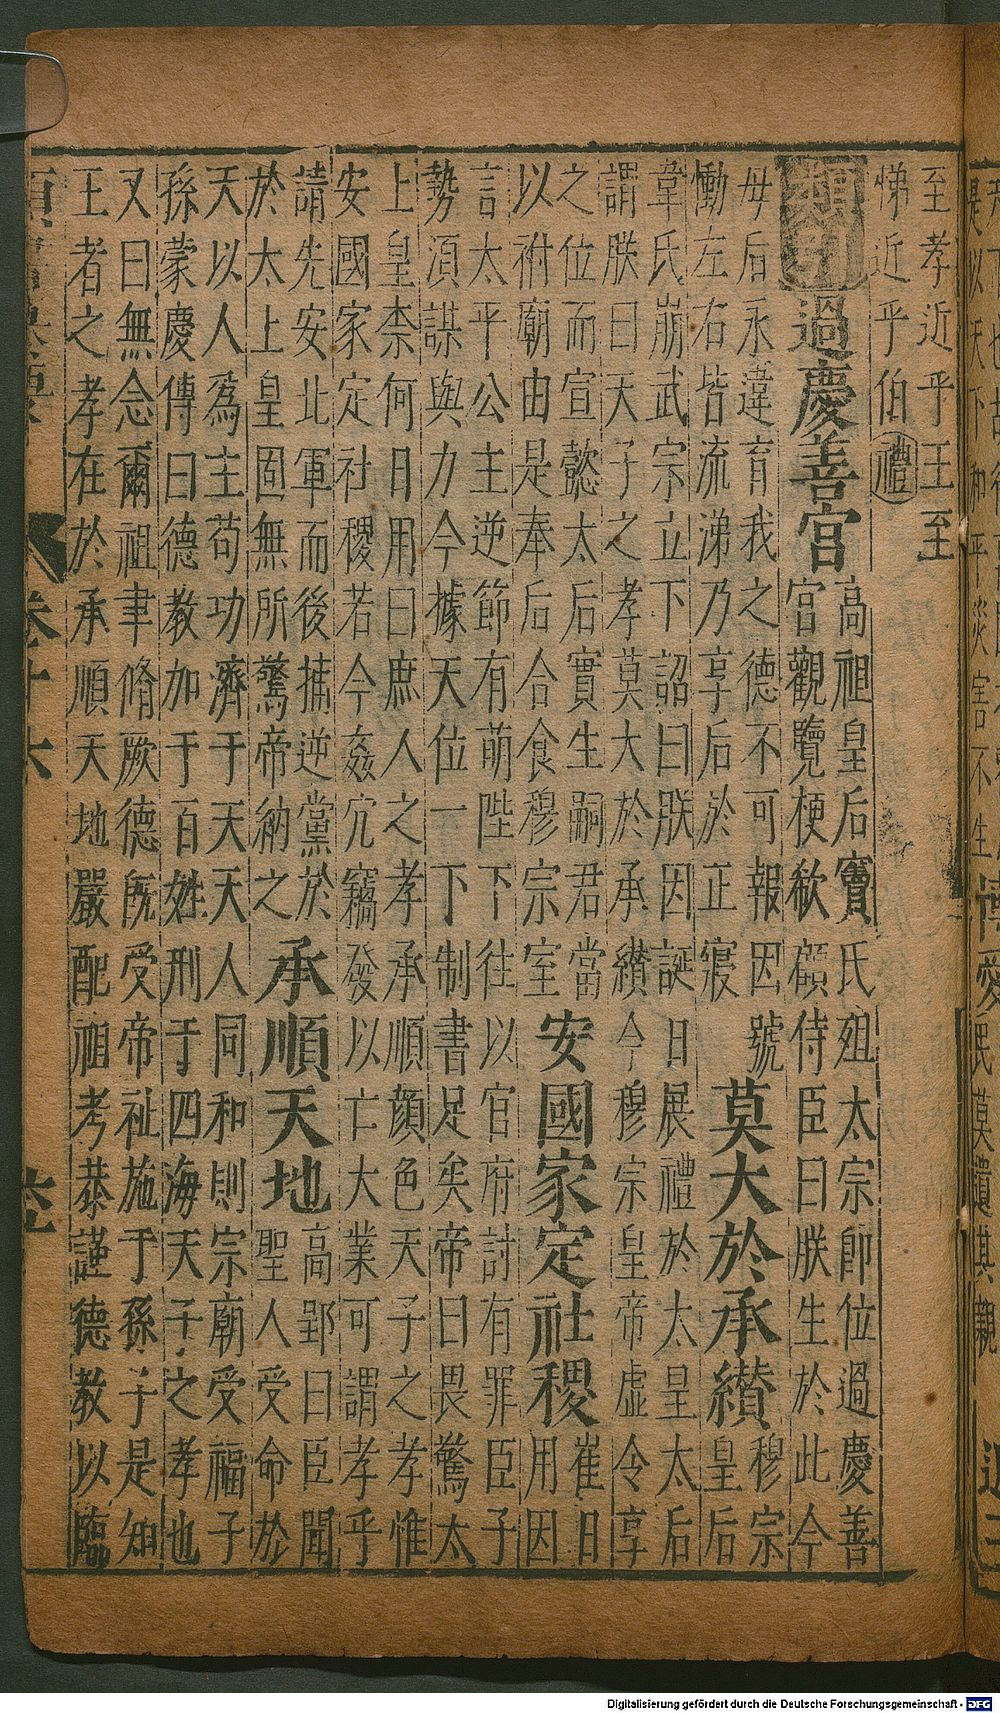 是以天下和平災害不生博愛民莫遺其親
至孝近乎王至
悌近乎伯禮
類
過慶善宮
高祖皇后竇氏殂太宗即位過慶善
宮觀覽梗欷顧侍臣曰朕生於此今
母后永違育我之德不可報因號
慟左右皆流涕乃享后於正寢
莫大於承纉
穆宗
皇后
韋氏崩武宗立下詔曰朕因誕日展禮於太皇太后
謂朕曰天子之孝莫大於承纉今穆宗皇帝虛令享
之位而宣懿太后實生嗣君當
以祔廟由是奉后合食穆宗室
安國家定社稷
崔日
用因
言太平公主逆節有萌陛下往以官府討有罪臣子
勢須謀與力今據天位一下制書足矣帝曰畏驚太
上皇柰何日用曰庶人之孝承順顔色天子之孝惟
安國家定社稷若今姦宄竊發以亡大業可謂孝乎
請先安北軍而後捕逆黨於
於太上皇固無所驚帝納之
承順天地
高郢曰臣聞
聖人受命於
天以人爲主苟功濟于天天人同和則宗廟受福子
孫蒙慶傳曰德教加于百姓刑于四海天子之孝也
又曰無念爾祖聿脩厥德旣受帝祉施于孫子是知
王者之孝在於承順天地嚴配祖考恭謹德教以臨
卷十六
Digitalisierung gefördert durch die Deutsche Forschungsgemeinschaft - DFG